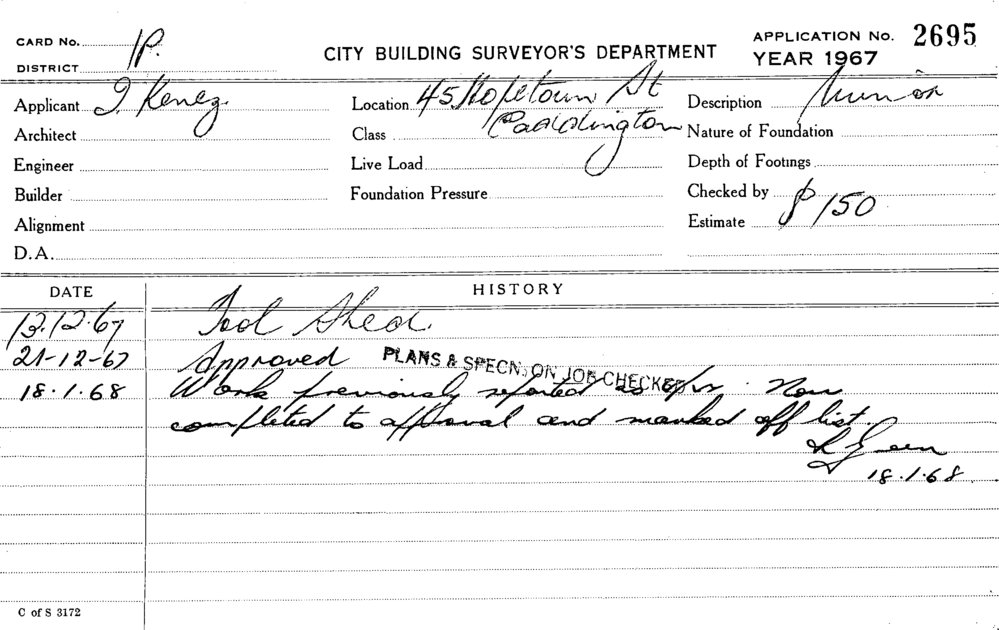 CARD No. 1P.
CITY BUILDING SURVEYOR'S DEPARTMENT
APPLICATION No. 2695
DISTRICT
YEAR 1967
Applicant J Kenez. Location 45 Hopetoun St Description Minor
Architect Class Paddington Nature of Foundation
Engineer Live Load Depth of Footings
Builder Foundation Pressure Checked by
Alignment Estimate $150
D.A.
DATE HISTORY
12.12.67 Tool Shed.
21-12-67 Approved PLANS & SPECN. ON JOB CHECKED
18.1.68 Work previously reported as Now
completed to approval and marked off list.
Green
18.1.68.
C of S 3172